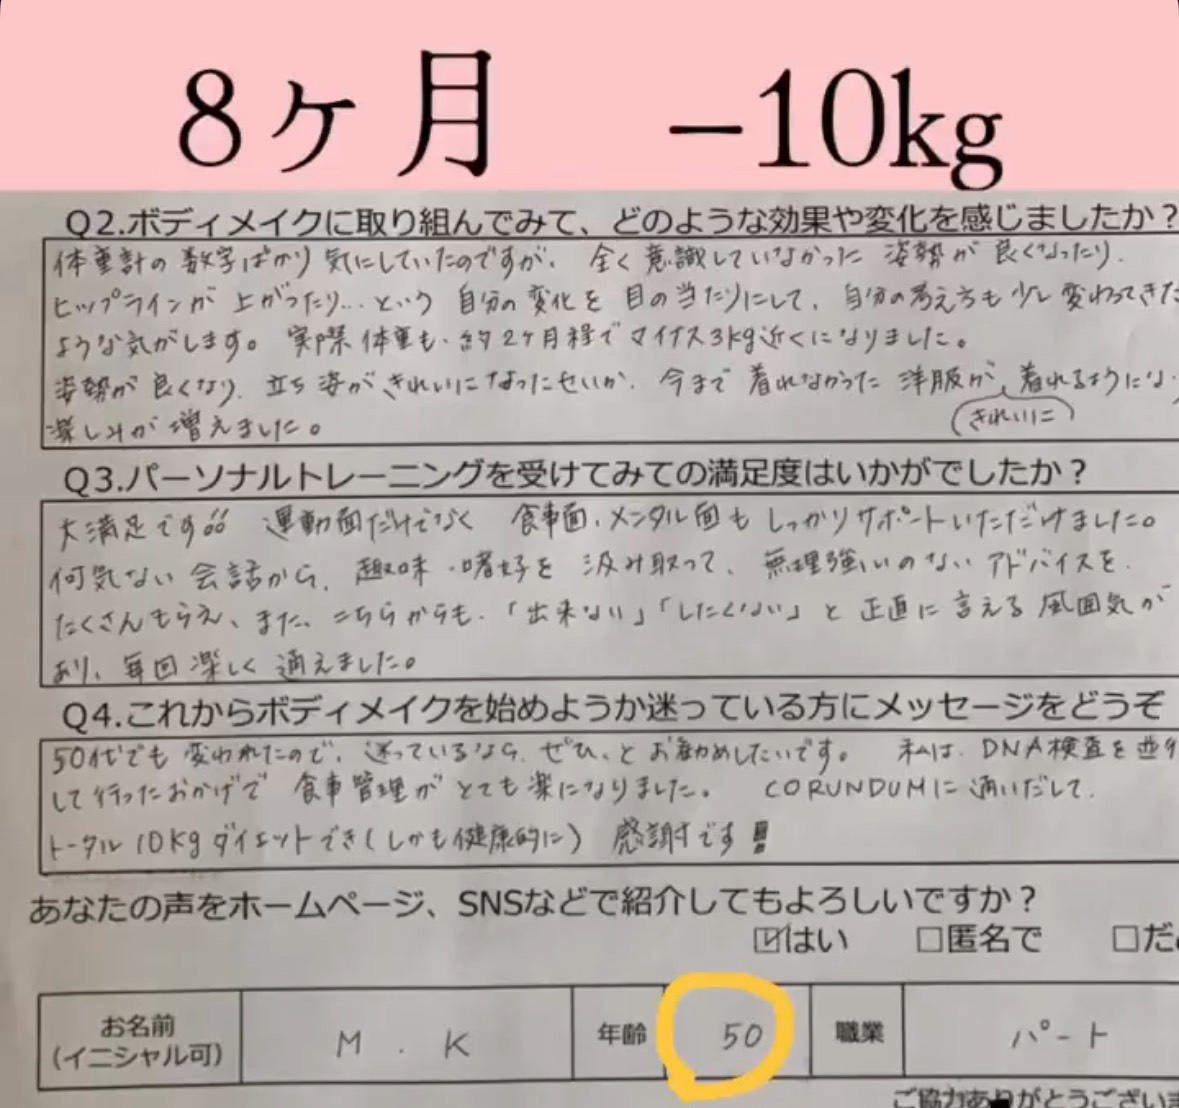 8ヶ月 −10kg
Q2.ボディメイクに取り組んでみて、どのような効果や変化を感じましたか?
体重計の数字ばかり気にしていたのですが、全く意識していなかった姿勢が良くなったり、
ヒップラインが上がったり…という自分の変化を目の当たりにして、自分の考え方も少し変わってきた
ような気がします。実際体重も、約2ヶ月程でマイナス3kg近くになりました。
姿勢が良くなり、立ち姿がきれいになったせいか、今まで着れなかった洋服が、着れるようにな
(きれいに)
楽しみが増えました。
Q3.パーソナルトレーニングを受けてみての満足度はいかがでしたか?
大満足です!! 運動面だけでなく 食事面、メンタル面もしっかりサポートいただけました。
何気ない会話から、趣味・嗜好を汲み取って、無理強いのないアドバイスを、
たくさんもらえ、また、こちらからも、「出来ない」「したくない」と正直に言える雰囲気が
あり、毎回楽しく通えました。
Q4.これからボディメイクを始めようか迷っている方にメッセージをどうぞ
50代でも変われたので、迷っているなら、ぜひ、とお勧めしたいです。 私は、DNA検査を並行
して行ったおかげで食事管理がとても楽になりました。 CORUNDUMに通いだして、
トータル10Kgダイエットでき(しかも健康的に) 感謝です!!
あなたの声をホームページ、SNSなどで紹介してもよろしいですか?
☑はい □匿名で □だ
お名前 M . K 年齢 50 職業 パート
(イニシャル可)
ご協力ありがとうございま